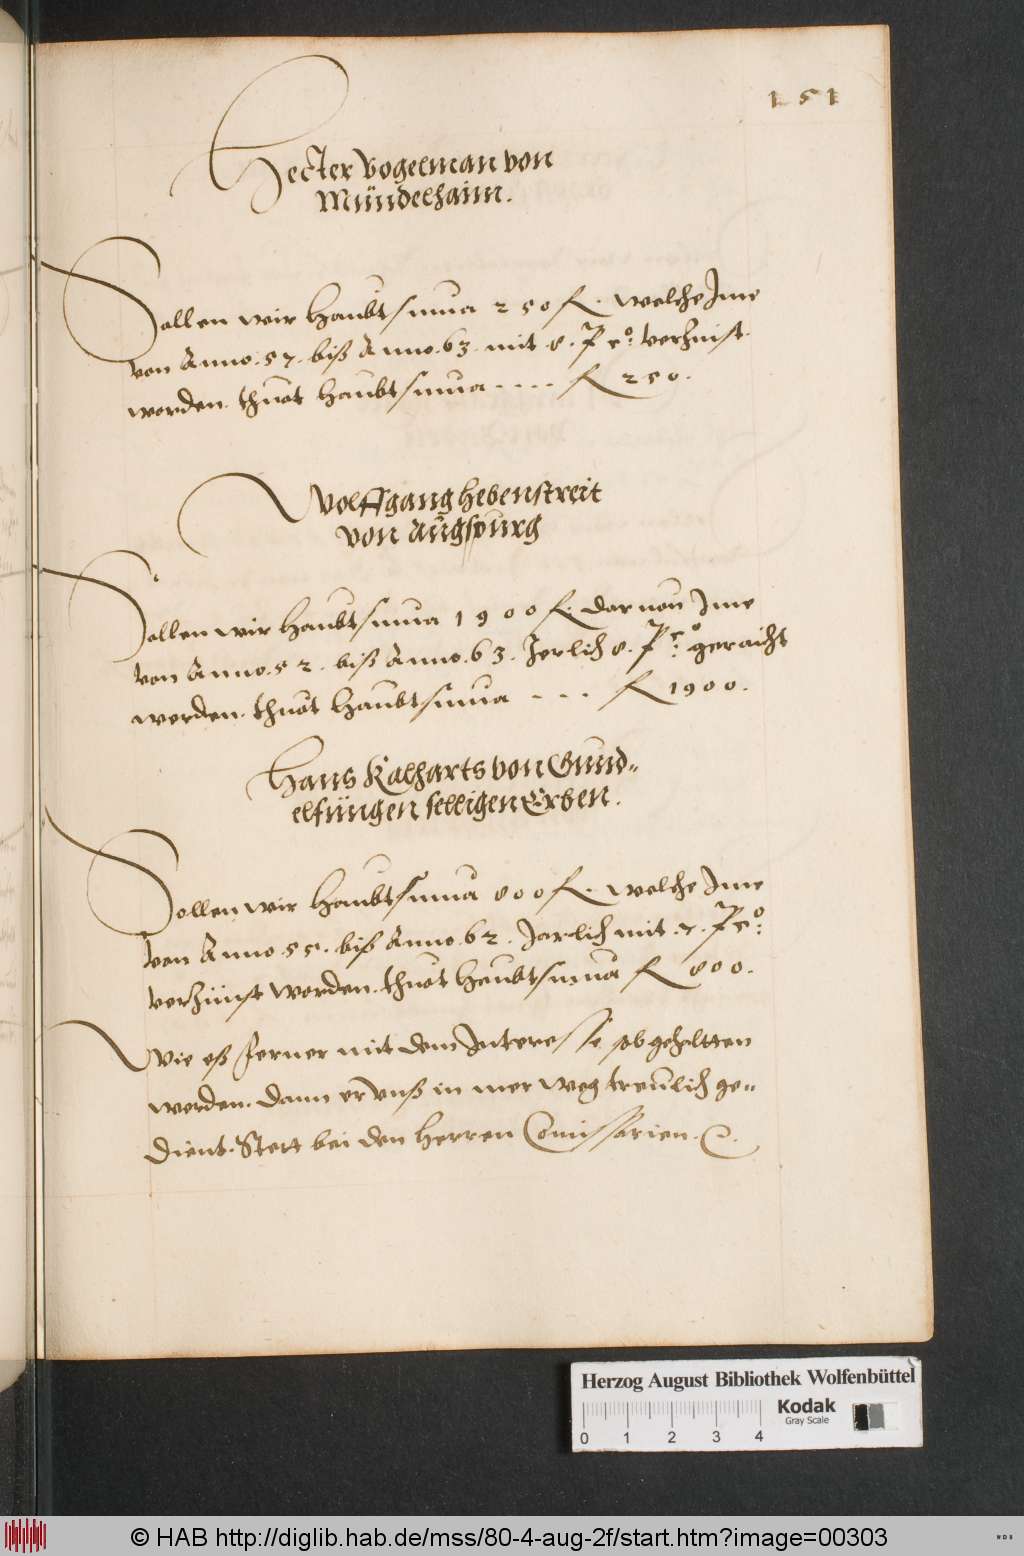 151
Hecter Vogelman von
Mündelhaim.
Sollen wir Haubtsuma 250 fl. welche Ime
von Anno. 57. biß Anno. 63. mit 8. Pco: verzinst
worden. thuot Haubtsuma .... fl 250.
Wolffgang Hebenstreit
von Augspurg
Sollen wir Haubtsuma 1900 fl. daruon Ime
von Anno. 52. biß Anno. 63. Jerlich 8. Pco: geraicht
worden. thuot Haubtsuma ... fl 1900.
Hans Kalharts von Gund-
elfüngen selligen Erben.
Sollen wir Haubtsuma 800 fl. welche Ime
von Anno. 55. biß Anno. 62. Jarlich mit .7. Pco:
verzünst worden. thuot Haubtsuma fl 800.
Wie eß ferner mit dem Interesse ob geheltten
werden. dann er unß in mer weg treulich ge-
dient. Stett bei den Herren Comissarien.
Herzog August Bibliothek Wolfenbüttel
Kodak
Gray Scale
0 1 2 3 4
© HAB http://diglib.hab.de/mss/80-4-aug-2f/start.htm?image=00303